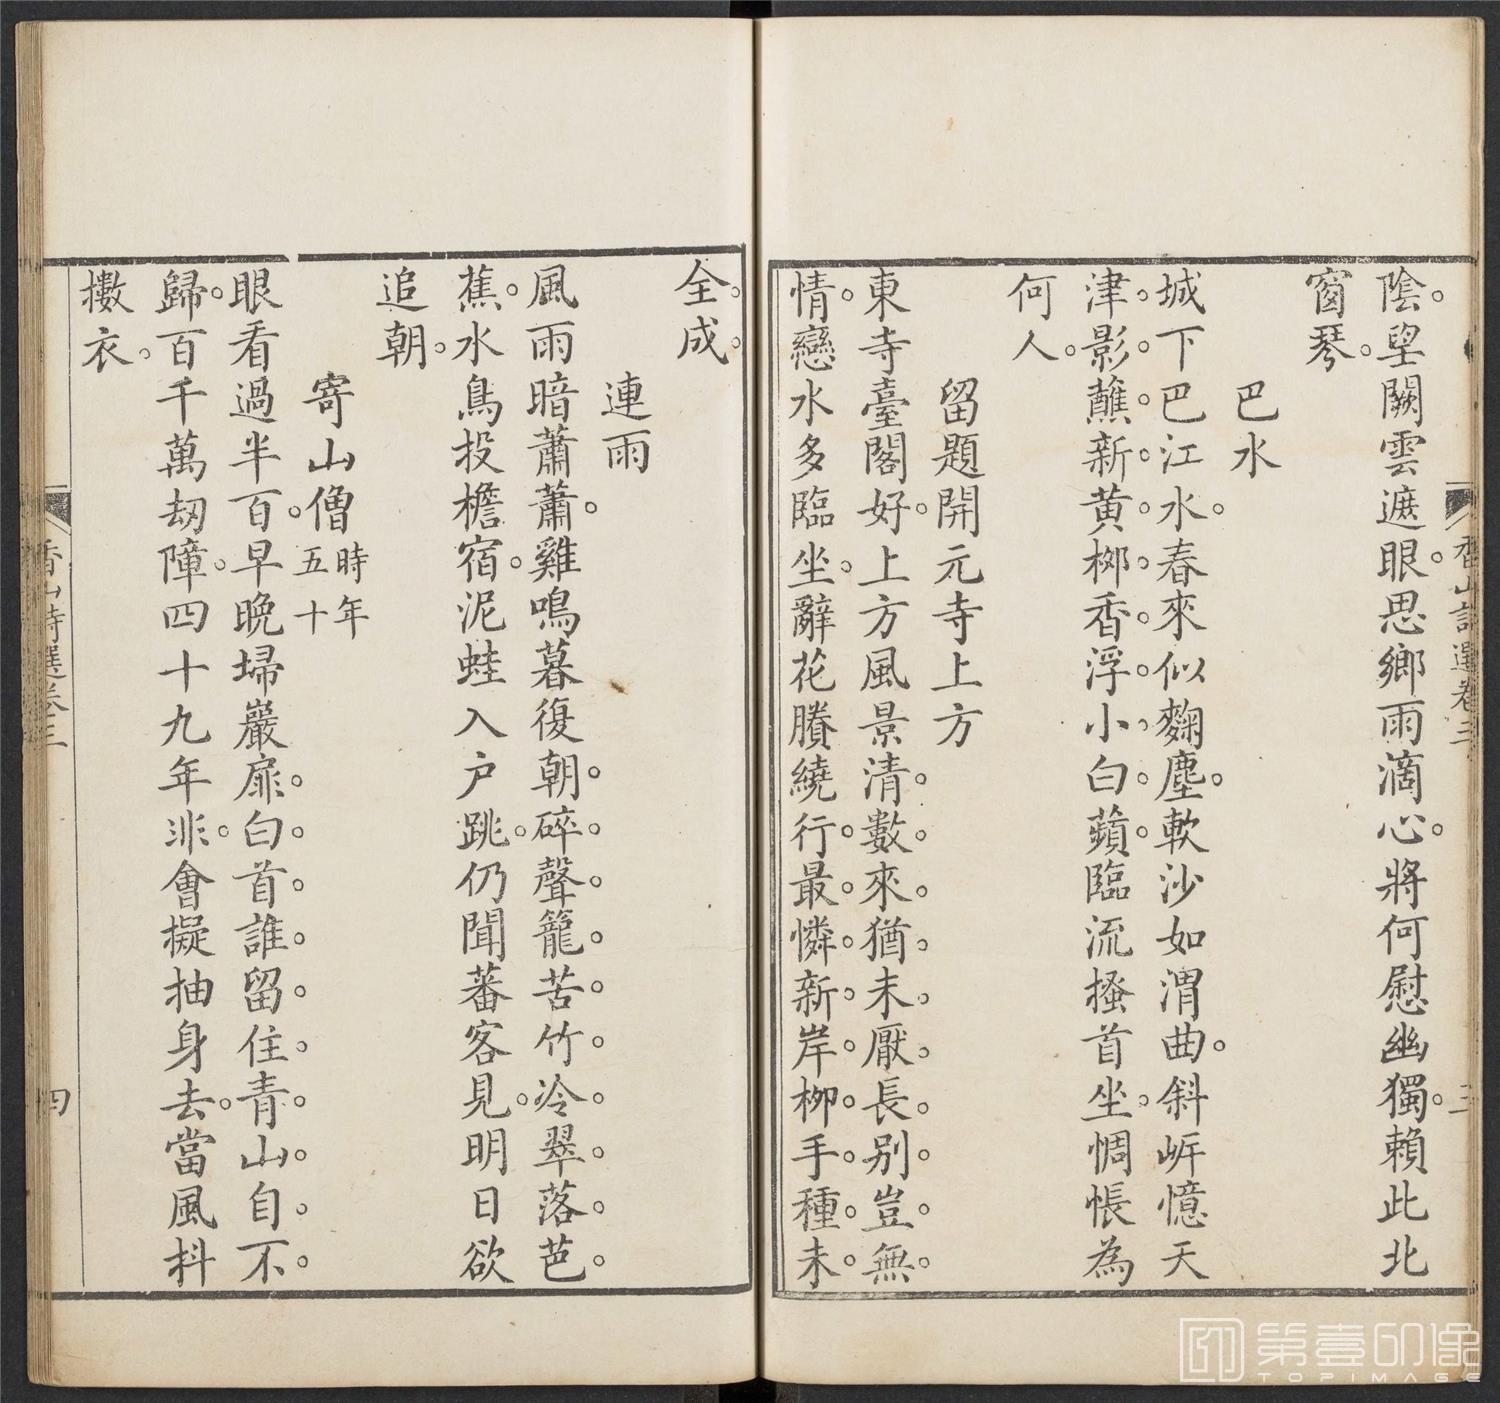 陰望闕雲遮眼思鄉雨滴心將何慰幽獨賴此北
窗琴
巴水
城下巴江水春來似麴塵軟沙如渭曲斜岍憶天
津影蘸新黃栁香浮小白蘋臨流搔首坐惆悵為
何人
留題開元寺上方
東寺臺閣好上方風景清數來猶未厭長别豈無
情戀水多臨坐辭花賸繞行最憐新岸栁手種未
全成
連雨
風雨暗蕭蕭雞鳴暮復朝碎聲籠苦竹冷翠落芭
蕉水鳥投檐宿泥蛙入户跳仍聞蕃客見明日欲
追朝
寄山僧時年五十
眼看過半百早晚埽巖扉白首誰留住青山自不
歸百千萬刼障四十九年非會擬抽身去當風抖
擻衣
香山詩選卷三
三
香山詩選卷三
四
第壹印像
TOPIMAGE